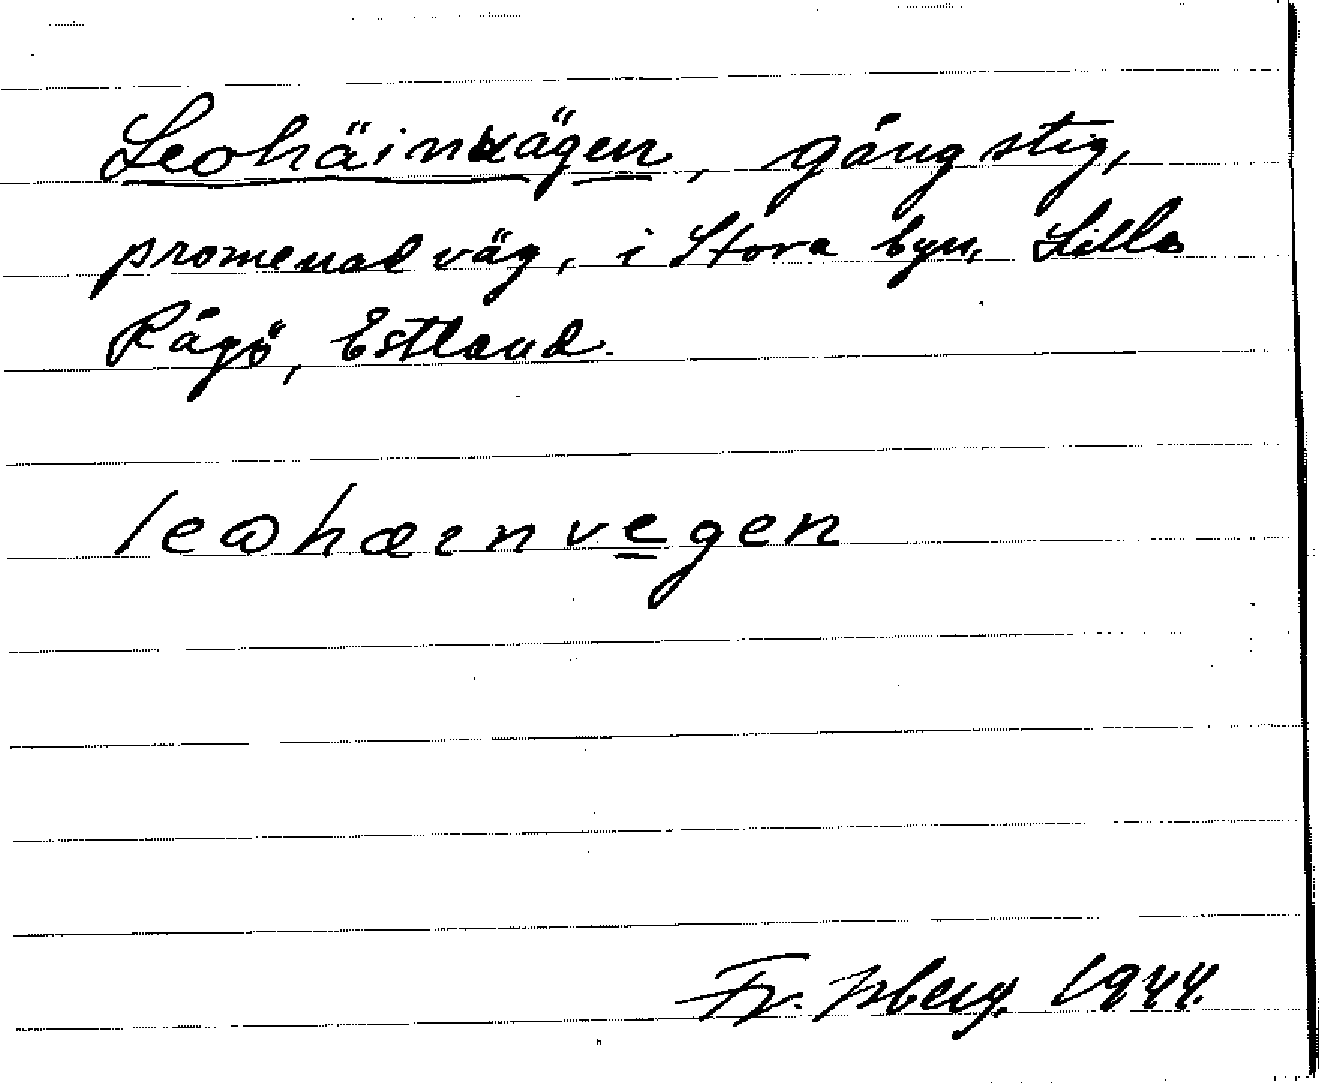 Leohäinvägen, gångstig,
promenadväg, i Stora byn, Lilla
Rågö, Estland.
leωhæınvegen
Fr. Isberg. 1944.